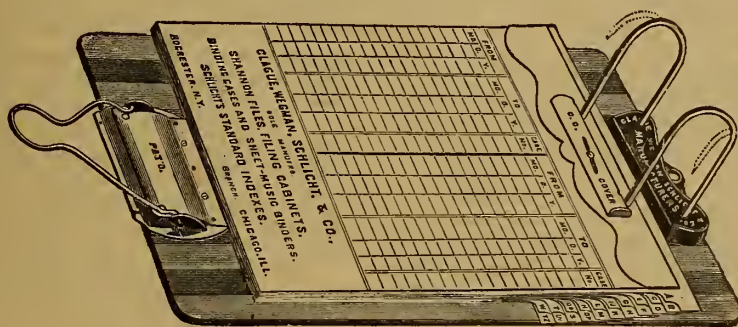 CLAGUE, WEGMAN, SCHLICHT, & CO.,
SOLE MANUFRS.
SHANNON FILES, FILING CABINETS,
BINDING CASES AND SHEET-MUSIC BINDERS.
SCHLICHT'S STANDARD INDEXES.
ROCHESTER, N.Y. BRANCH. CHICAGO, ILL.
FROM TO CASE FROM TO CASE
MO. D. Y. MO. D. Y. NO. MO. D. Y. MO. D. Y. NO.
O.O.
COVER
MANUFACTURERS
PAT'D.